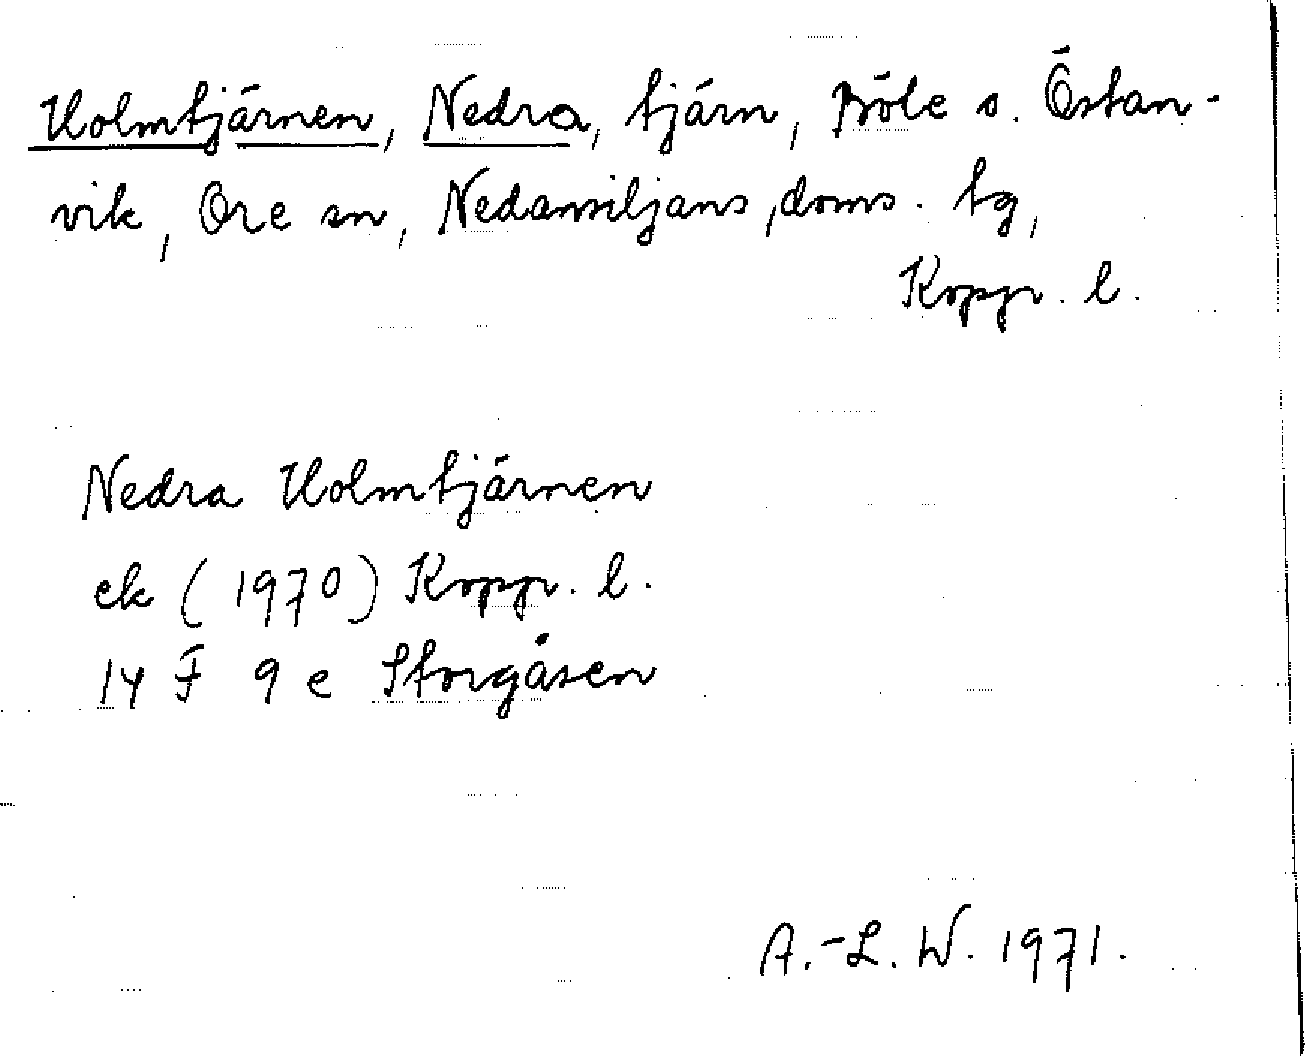 Holmtjärnen, Nedra, tjärn, Böle s. Östan-
vik, Ore sn, Nedansiljans, doms. tg,
Koppr. l.
Nedra Holmtjärnen
ek (1970) Koppr. l.
14 F 9 e Storgåsen
A.-L. W. 1971.